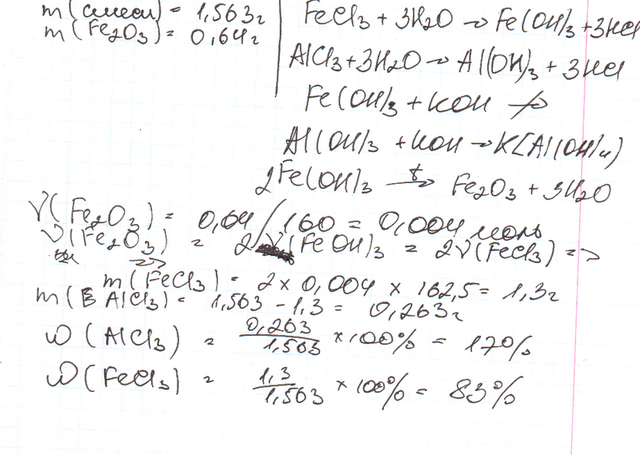 m(смеси) = 1,563г
m(Fe2O3) = 0,64г
FeCl3 + 3H2O → Fe(OH)3 + 3HCl
AlCl3 + 3H2O → Al(OH)3 + 3HCl
Fe(OH)3 + KOH ↛
Al(OH)3 + KOH → K[Al(OH)4)
2Fe(OH)3 —t→ Fe2O3 + 3H2O
ν(Fe2O3) = 0,64/160 = 0,004 моль
ν(Fe2O3) = 2 ν(FeOH)3 = 2ν(FeCl3) =>
=> m(FeCl3) = 2 × 0,004 × 162,5 = 1,3г
m(В AlCl3) = 1,563 - 1,3 = 0,263г
ω(AlCl3) = 0,263/1,563 × 100% = 17%
ω(FeCl3) = 1,3/1,563 × 100% = 83%